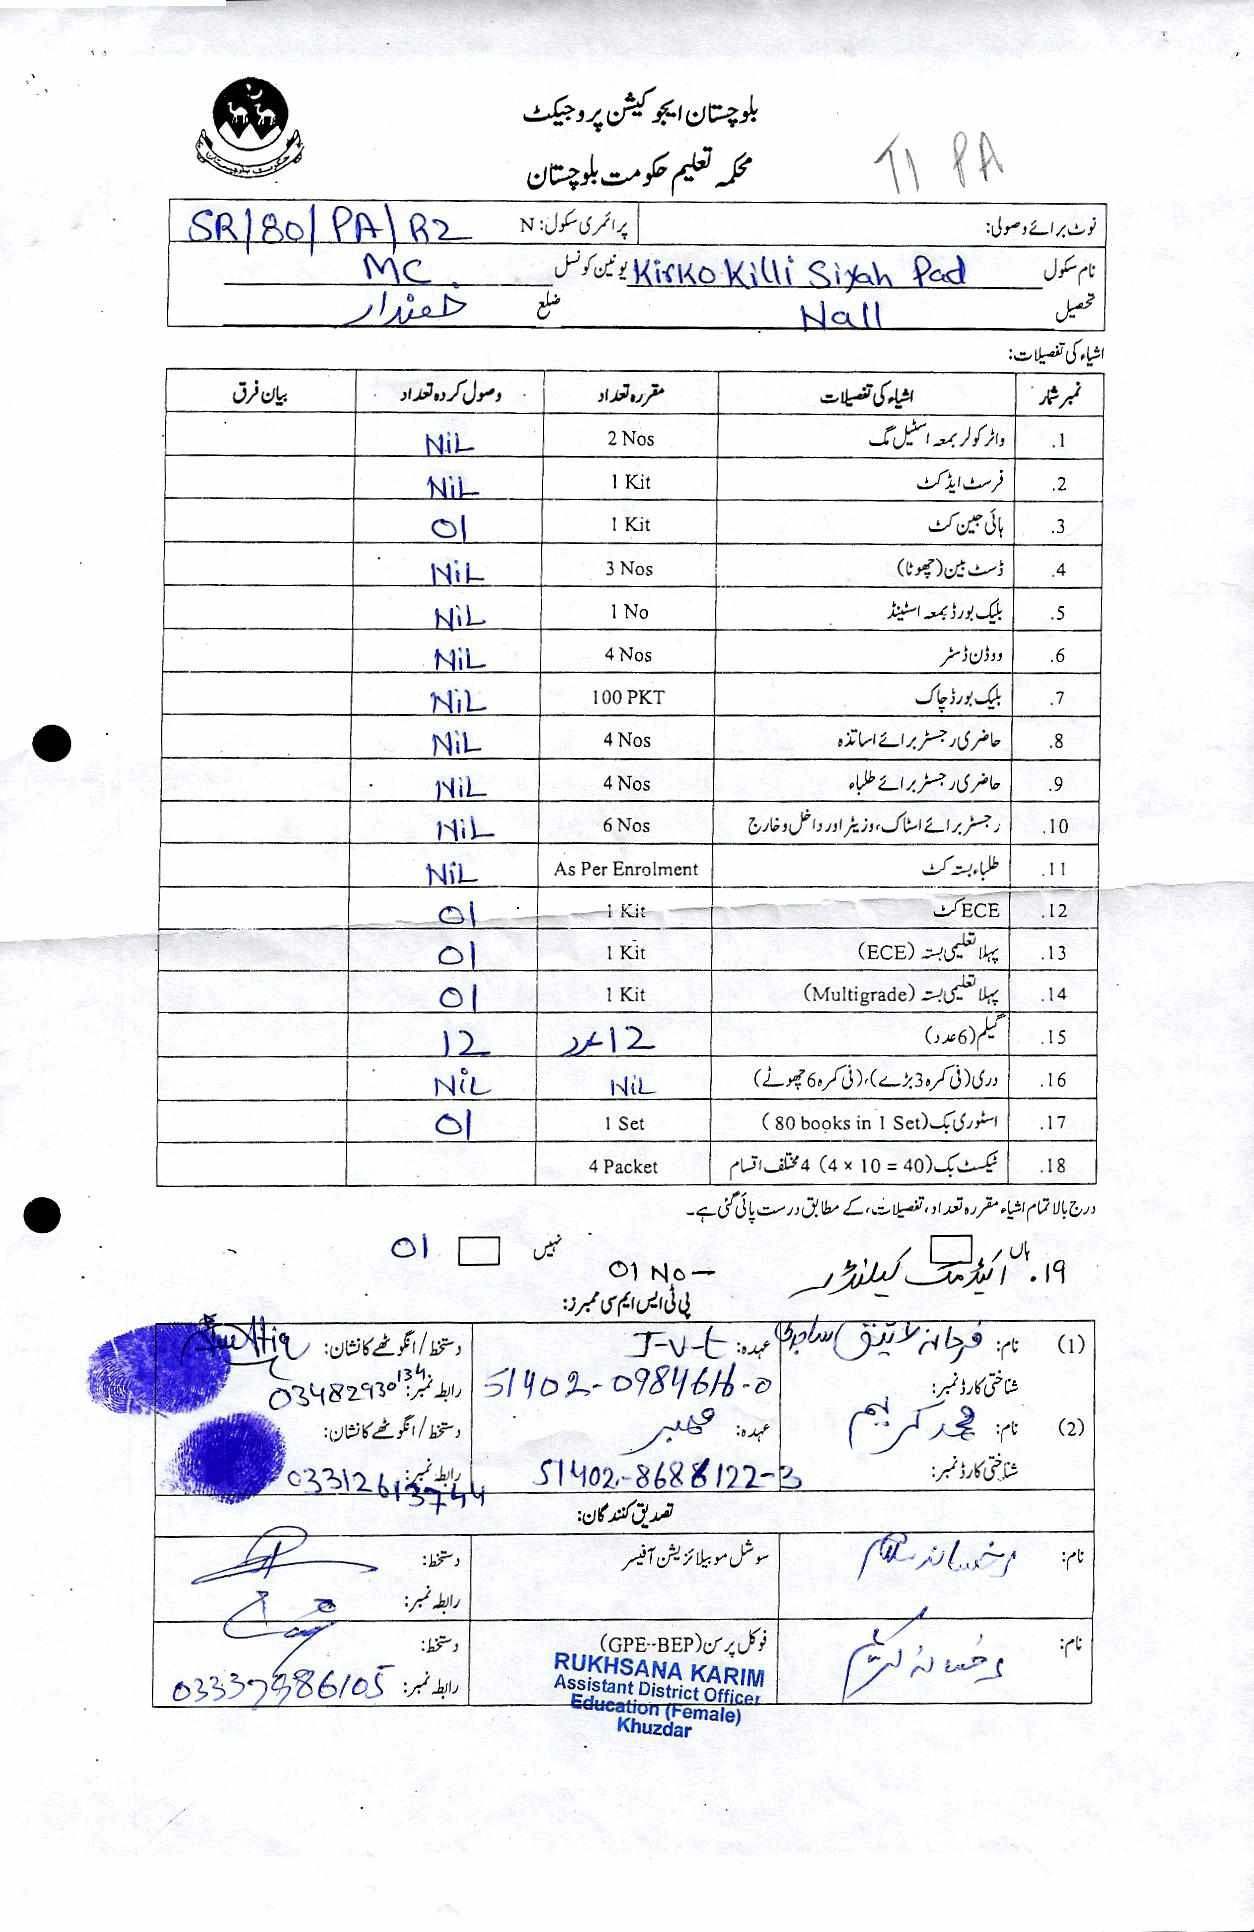 بلوچستان ایجوکیشن پروجیکٹ
محکمہ تعلیم حکومت بلوچستان
T1 PA
نوٹ برائے وصولی: پرائمری سکول: N SR/80/PA/R2
نام سکول Kirko Killi Siyah Pad یونین کونسل MC
تحصیل Nall ضلع خضدار
اشیاء کی تفصیلات:
نمبر شمار اشیاء کی تفصیلات مقررہ تعداد وصول کردہ تعداد بیان فرق
1. واٹر کولر بمعہ اسٹیل مگ 2 Nos NiL
2. فرسٹ ایڈ کٹ 1 Kit NiL
3. ہائی جین کٹ 1 Kit 01
4. ڈسٹ بین (چھوٹا) 3 Nos NiL
5. بلیک بورڈ بمعہ اسٹینڈ 1 No NiL
6. ووڈن ڈسٹر 4 Nos NiL
7. بلیک بورڈ چاک 100 PKT NiL
8. حاضری رجسٹر برائے اساتذہ 4 Nos NiL
9. حاضری رجسٹر برائے طلباء 4 Nos NiL
10. رجسٹر برائے اسٹاک، وزیٹر اور داخل و خارج 6 Nos NiL
11. طلباء بستہ کٹ As Per Enrolment NiL
12. ECE کٹ 1 Kit 01
13. پہلا تعلیمی بستہ (ECE) 1 Kit 01
14. پہلا تعلیمی بستہ (Multigrade) 1 Kit 01
15. گیلم (6 عدد) 12 عدد 12
16. دری (فی کمرہ 3 بڑے)، (فی کمرہ 6 چھوٹے) NiL NiL
17. اسٹوری بک (80 books in 1 Set) 1 Set 01
18. ٹیکسٹ بک (4 × 10 = 40) 4 مختلف اقسام 4 Packet
درج بالا تمام اشیاء مقررہ تعداد، تفصیلات، کے مطابق درست پائی گئی ہے۔
ہاں نہیں 01
۱۹. اکیڈمک کیلنڈر 01 No —
پی ٹی ایس ایم سی ممبرز:
(1) نام: فرحانہ عہدہ: J-V-t دستخط / انگوٹھے کا نشان:
شناختی کارڈ نمبر: 51402-0984616-0 رابطہ نمبر: 03482930134
(2) نام: محمد کریم عہدہ: ممبر دستخط / انگوٹھے کا نشان:
شناختی کارڈ نمبر: 51402-8688122-3 رابطہ نمبر: 03312613744
تصدیق کنندگان:
نام: رخسانہ سلام سوشل موبیلائزیشن آفیسر دستخط:
رابطہ نمبر:
نام: رخسانہ کریم فوکل پرسن (GPE--BEP) دستخط:
رابطہ نمبر: 03337986105
RUKHSANA KARIM
Assistant District Officer
Education (Female)
Khuzdar